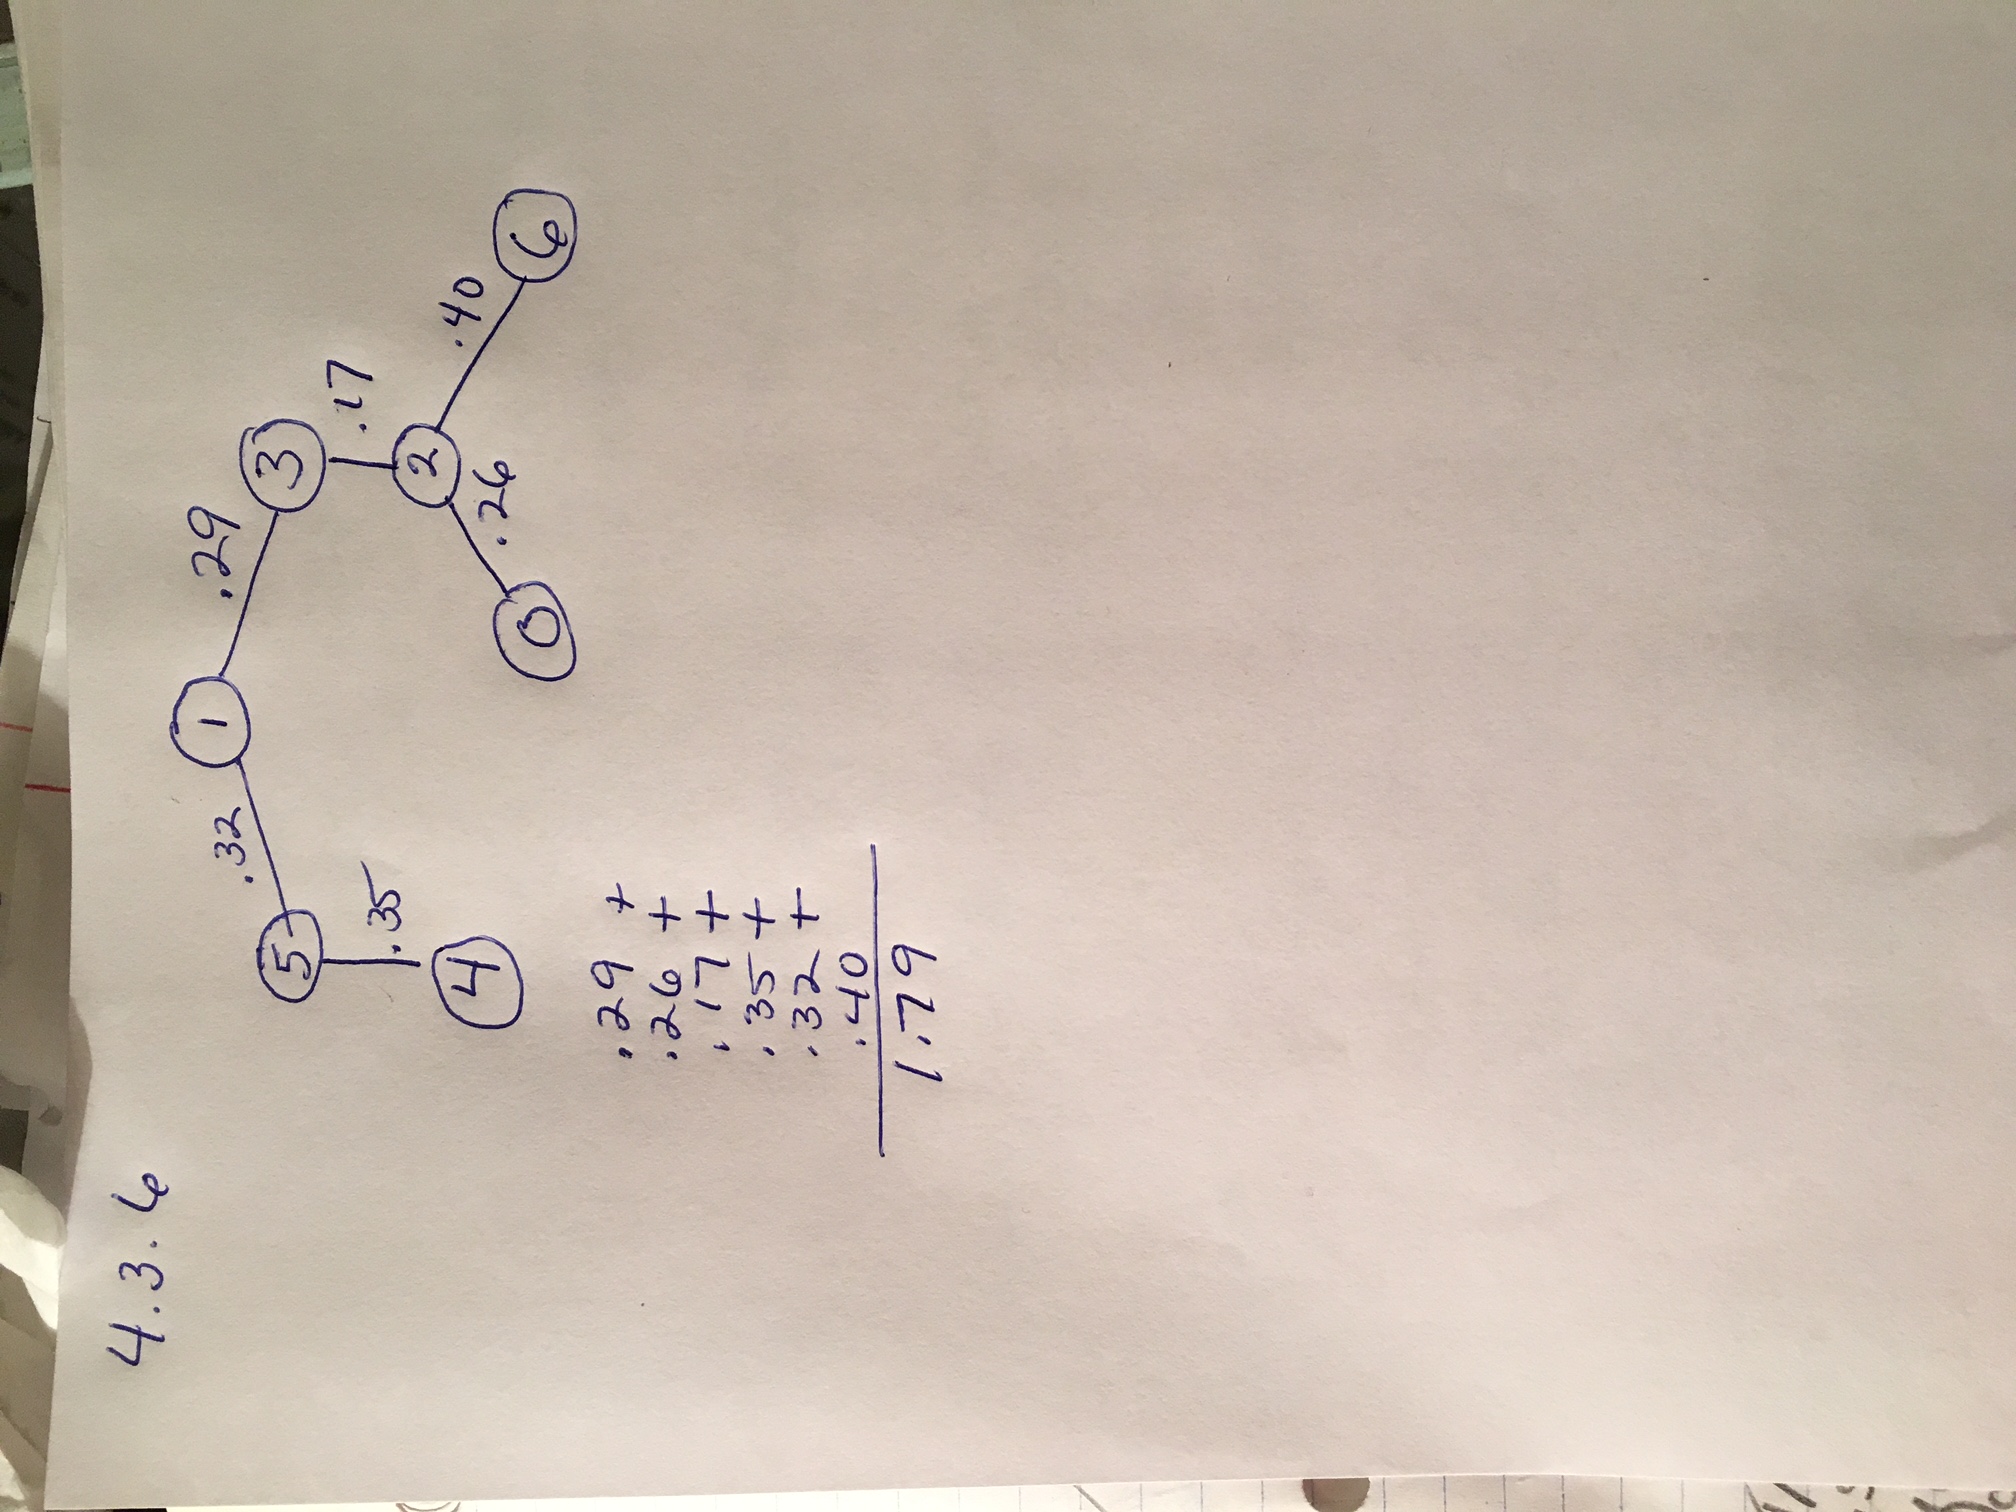 4.3.6
1
.32
.29
5
3
.17
.35
2
4
.40
.26
0
6
.29 +
.26 +
.17 +
.35 +
.32 +
.40
1.79